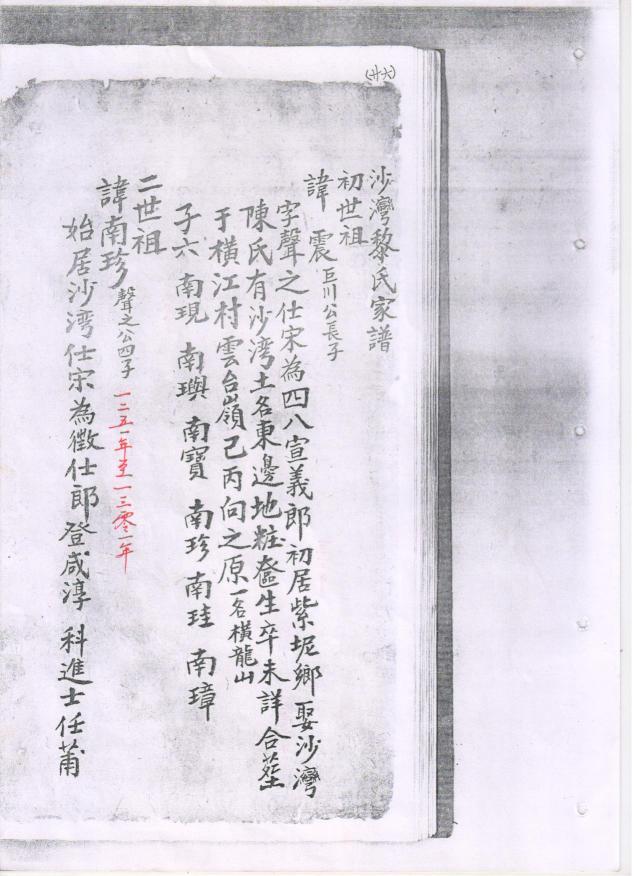 (廿六)
沙灣黎氏家譜
初世祖
諱 震 巨川公長子
字聲之仕宋為四八宣義郎初居紫坭鄉娶沙灣
陳氏有沙灣土名東邊地粧奩生卒未詳合塟
于橫江村雲台嶺己丙向之原一名橫龍山
子六 南現 南璵 南寶 南珍 南珪 南璋
二世祖
諱南珍 聲之公四子 一二五一年至一三零一年
始居沙湾仕宋為徵仕郎登咸淳 科進士任莆